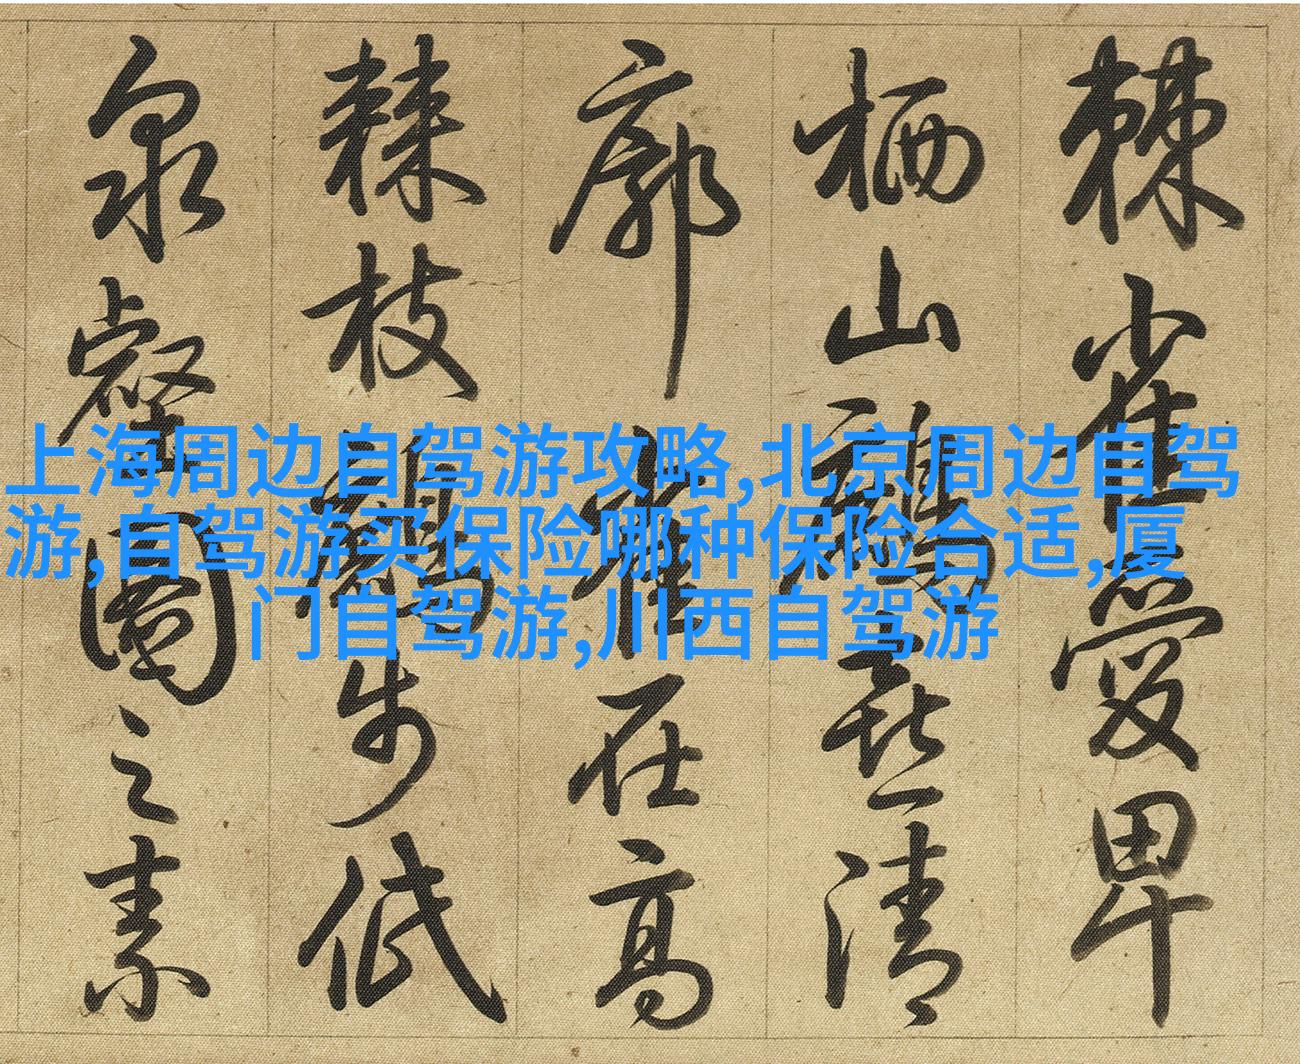 棘雀愛卑
栖山鶴喜清
廓雀在高
棘枝鶴步低
泉壑之素
上海周边自驾游攻略,北京周边自驾
游,自驾游买保险哪种保险合适,厦
门自驾游,川西自驾游